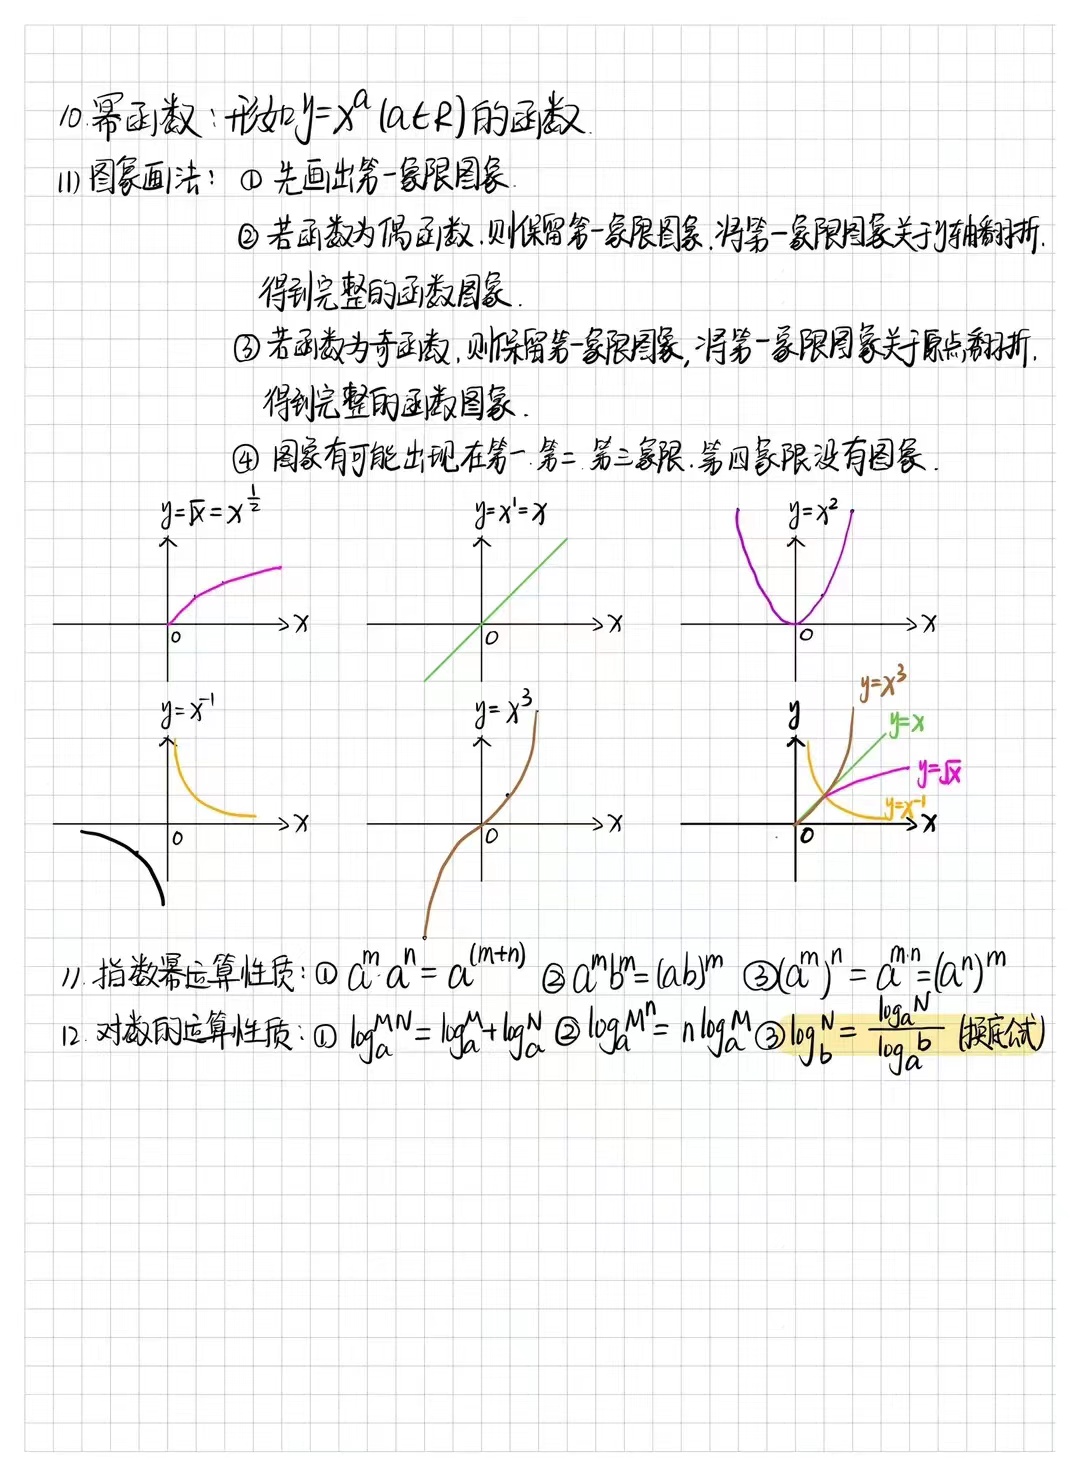 10.幂函数:形如y=x^a(a∈R)的函数.
(1)图象画法:① 先画出第一象限图象.
② 若函数为偶函数.则保留第一象限图象.将第一象限图象关于y轴翻折.
得到完整的函数图象.
③ 若函数为奇函数,则保留第一象限图象,将第一象限图象关于原点翻折.
得到完整的函数图象.
④ 图象有可能出现在第一.第二.第三象限.第四象限没有图象.
y=√x=x^{1/2} y=x^1=x y=x^2
x x x
0 0 0
y=x^3
y=x^{-1} y=x^3 y y=x
y=√x
y=x^{-1}
x x x
0 0 0
11.指数幂运算性质:① a^m·a^n=a^{(m+n)} ② a^m b^m=(ab)^m ③(a^m)^n=a^{m·n}=(a^n)^m
12.对数的运算性质:① log_a^{MN}=log_a^M+log_a^N ② log_a^{M^n}=n log_a^M ③ log_b^N=\frac{log_a^N}{log_a^b} (换底公式)